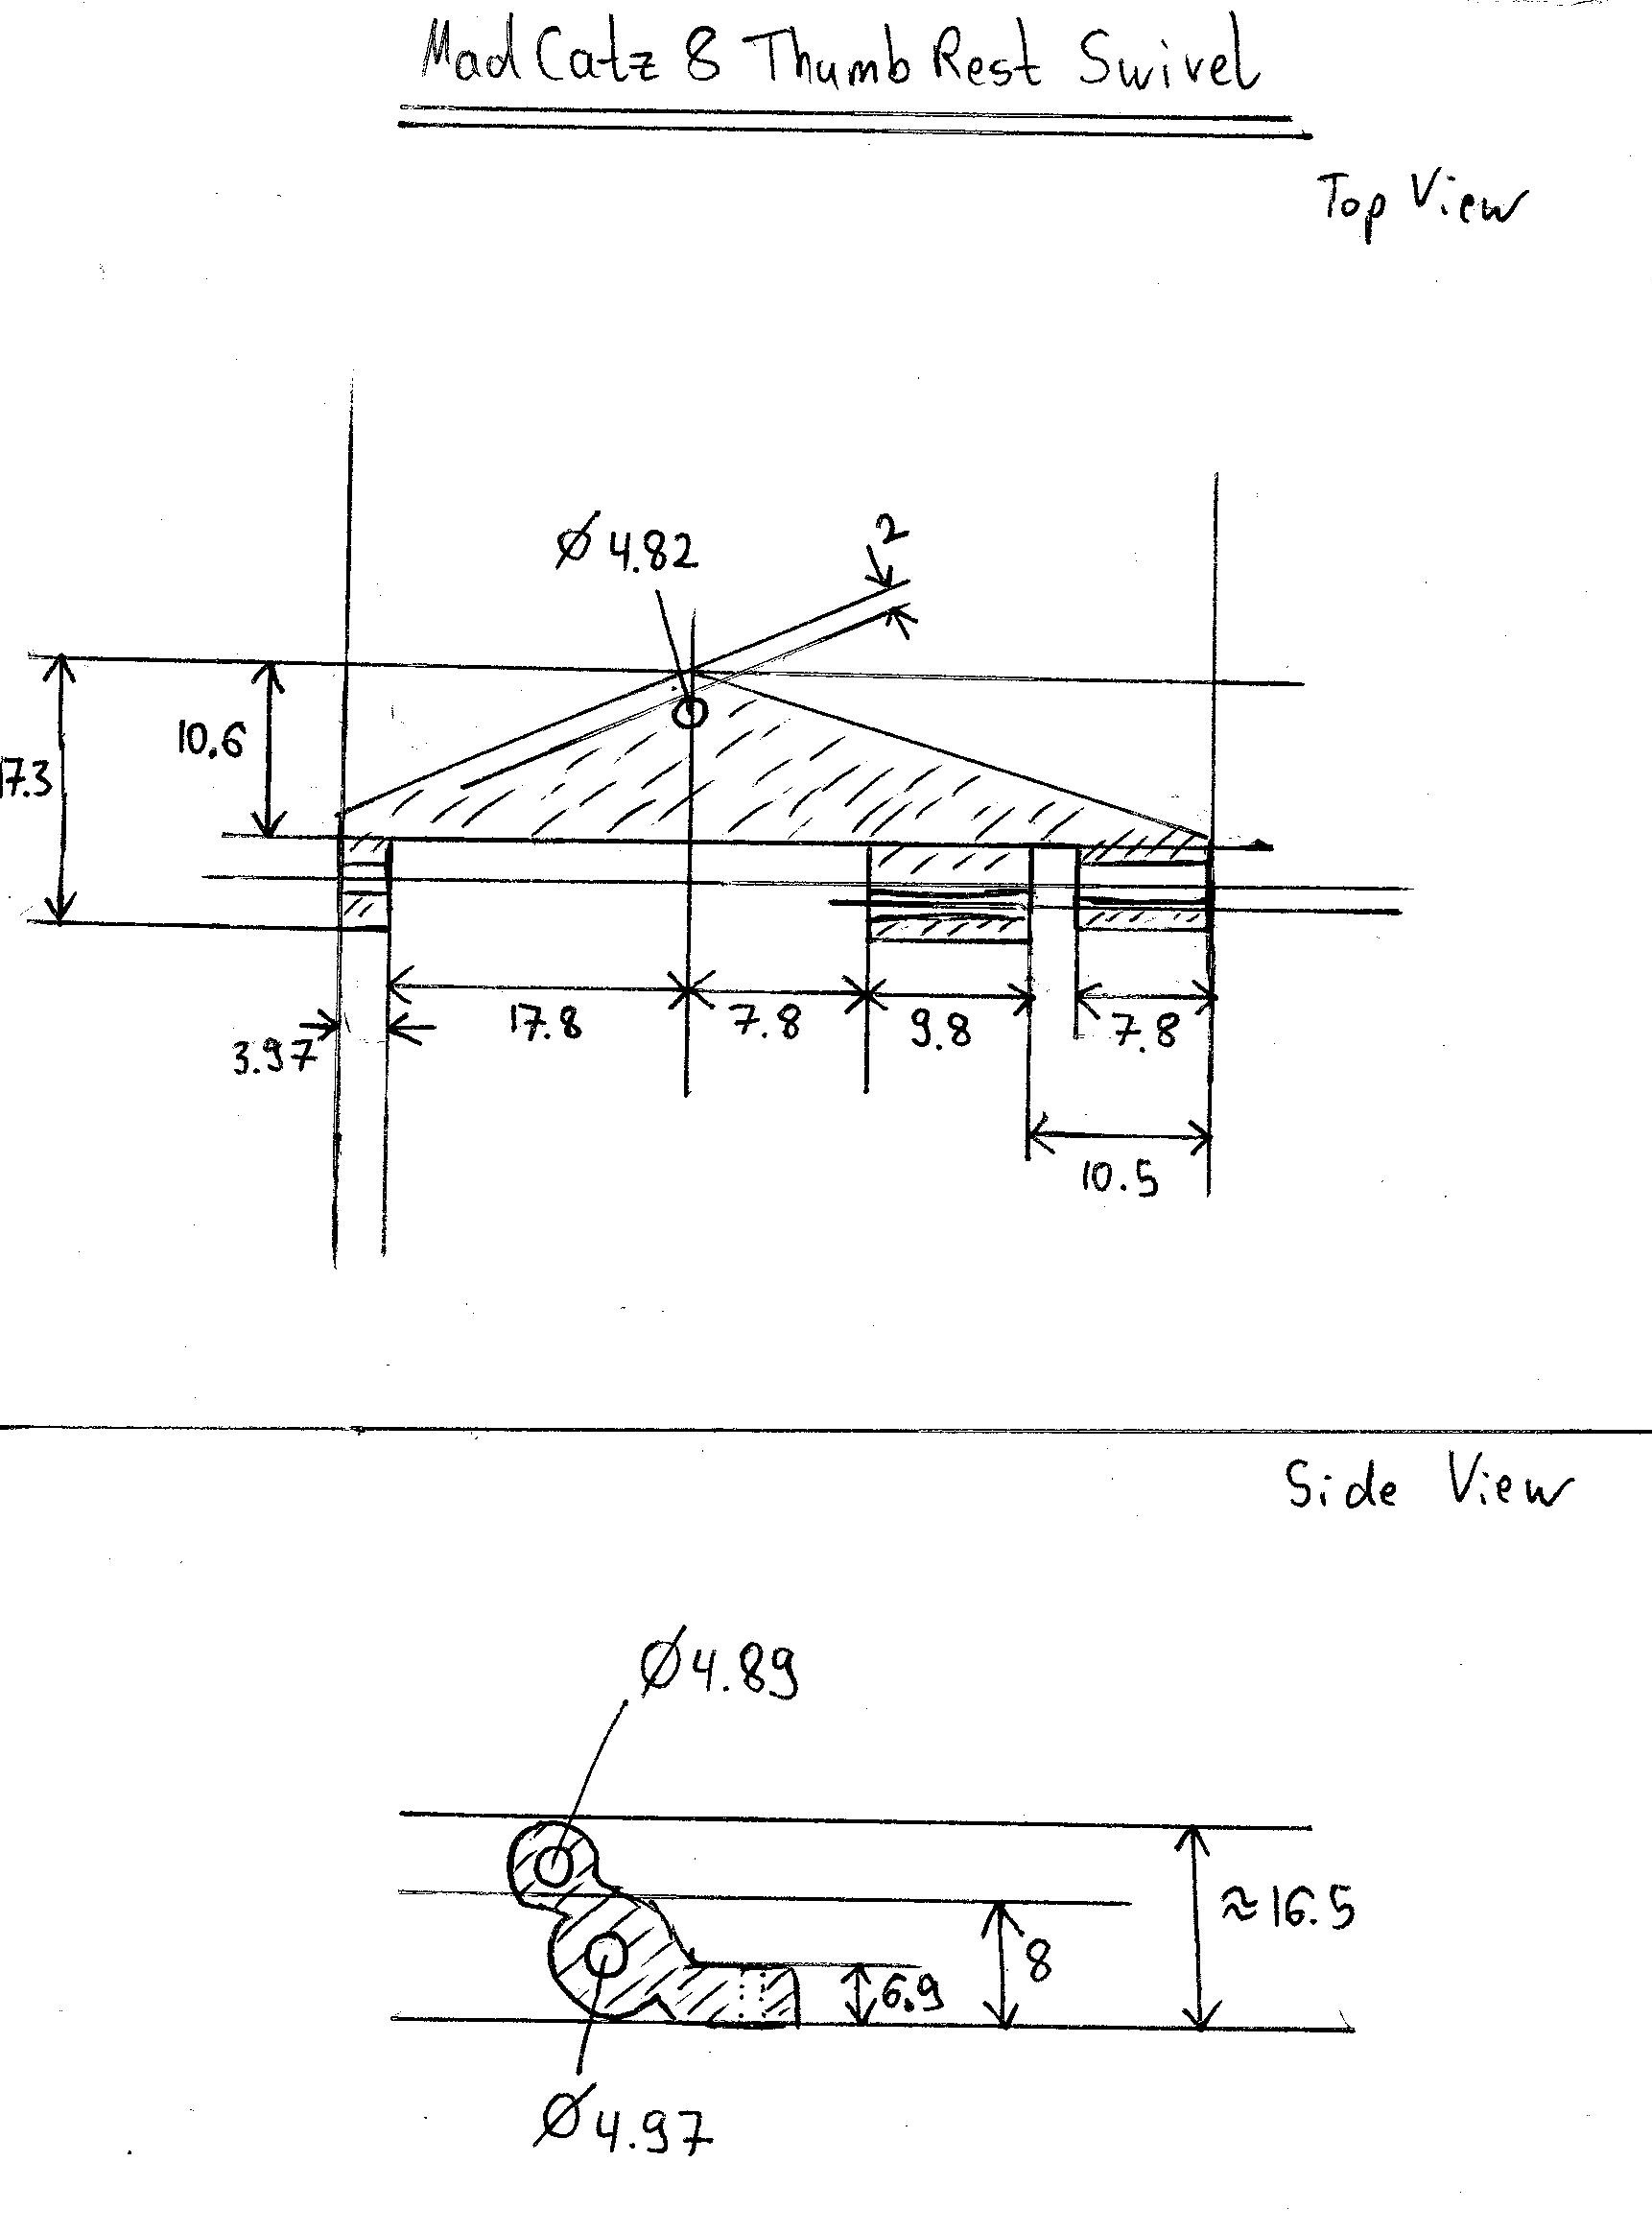 Mad Catz 8 Thumb Rest Swivel
Top View
2
Ø 4.82
10.6
17.3
17.8
7.8
9.8
7.8
3.97
10.5
Side View
Ø4.89
≈16.5
8
6.9
Ø4.97